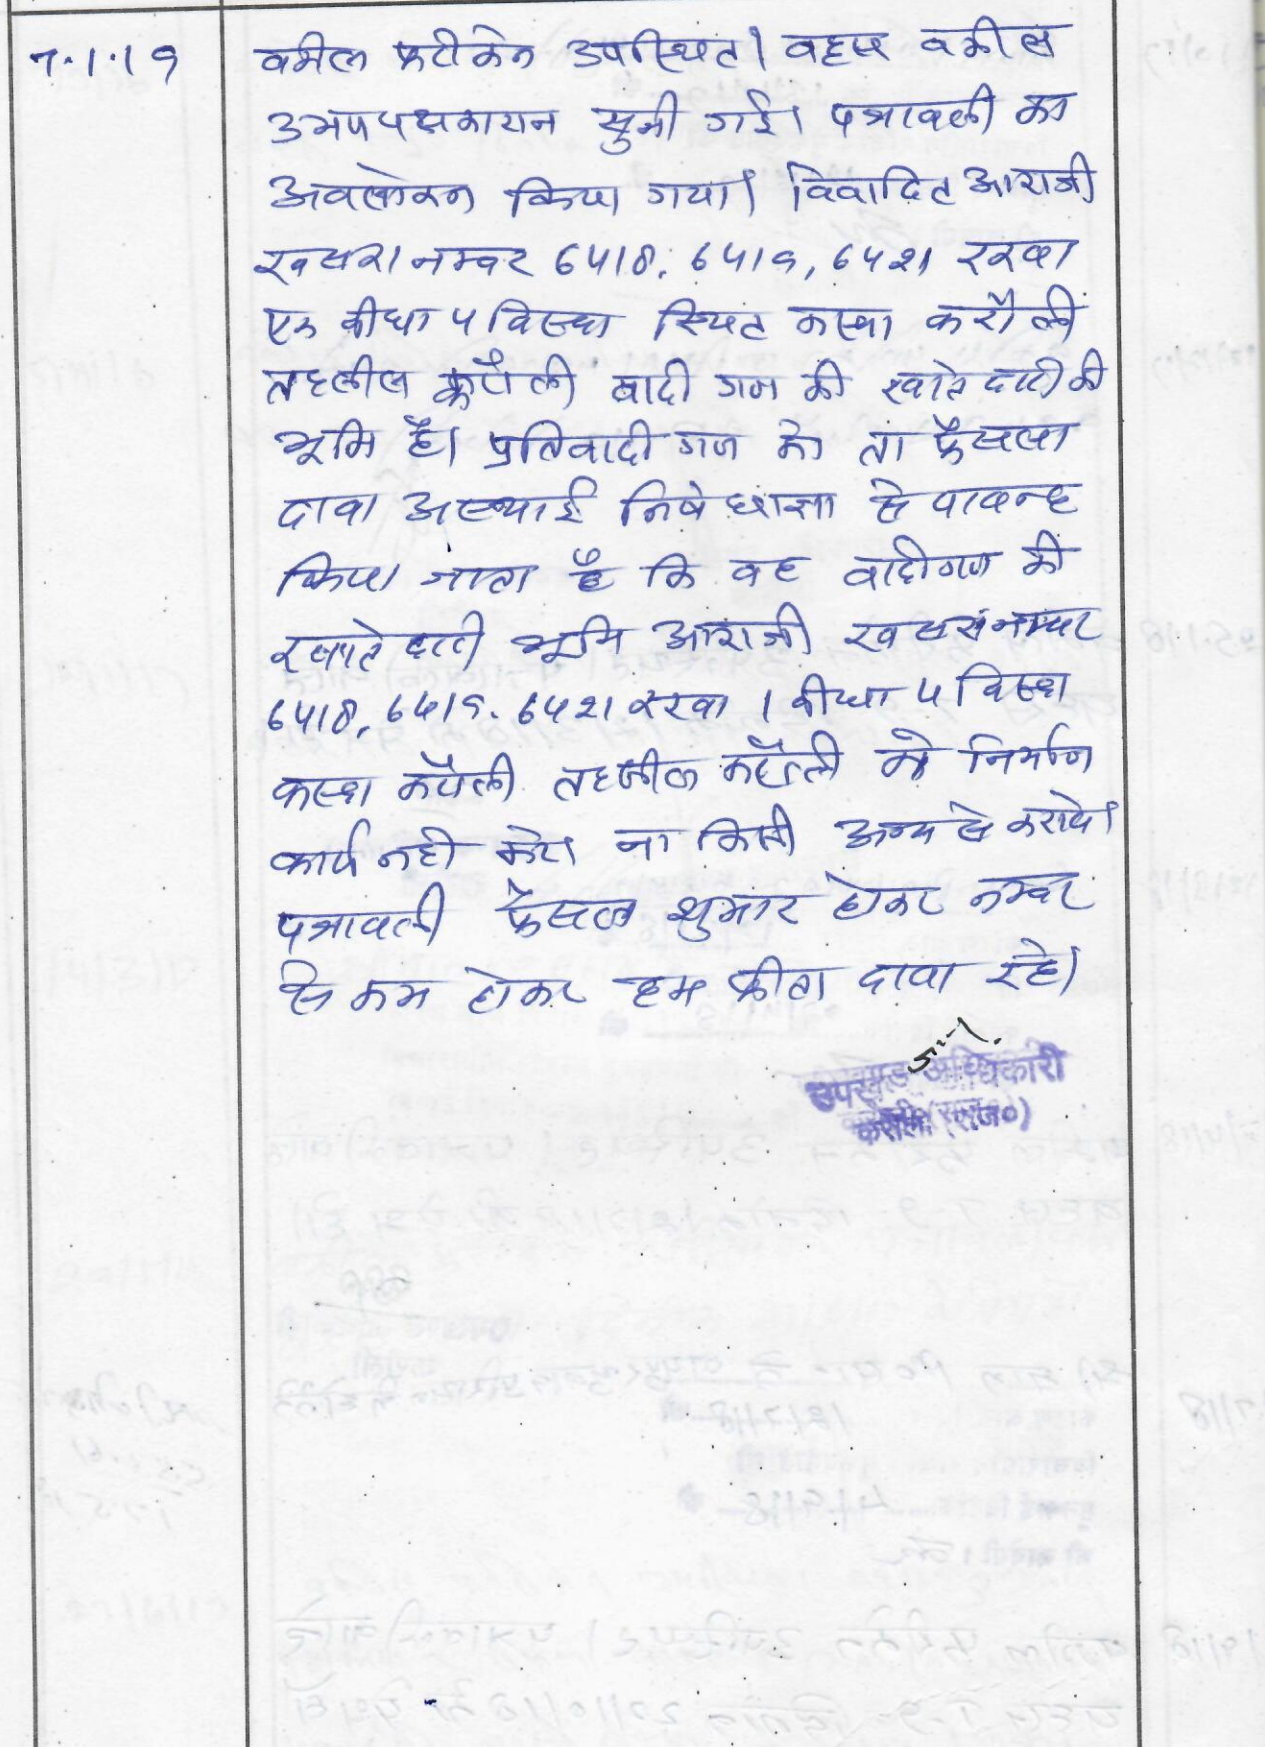 7.1.19
वकील फरीकेन उपस्थित। वहस वकील
उभयपक्षकारान सुनी गई। पत्रावली का
अवलोकन किया गया। विवादित आराजी
खसरा नम्बर 6418, 6419, 6421 रकवा
एक बीघा 4 विस्वा स्थित कस्वा करौली
तहसील करौली वादी गण की खातेदारी की
भूमि है। प्रतिवादी गण को ता फैसला
दावा अस्थाई निषेधाज्ञा से पावन्द
किया जाता है कि वह वादीगण की
खातेदारी भूमि आराजी खसरा नम्बर
6418, 6419, 6421 रकवा 1 बीघा 4 विस्वा
कस्वा करौली तहसील करौली मे निर्माण
कार्य नही करे। ना किसी अन्य से कराये।
पत्रावली फैसल शुमार होकर नम्वर
से कम होकर हम फीता दावा रहे।
उपखण्ड अधिकारी
करौली (राज०)